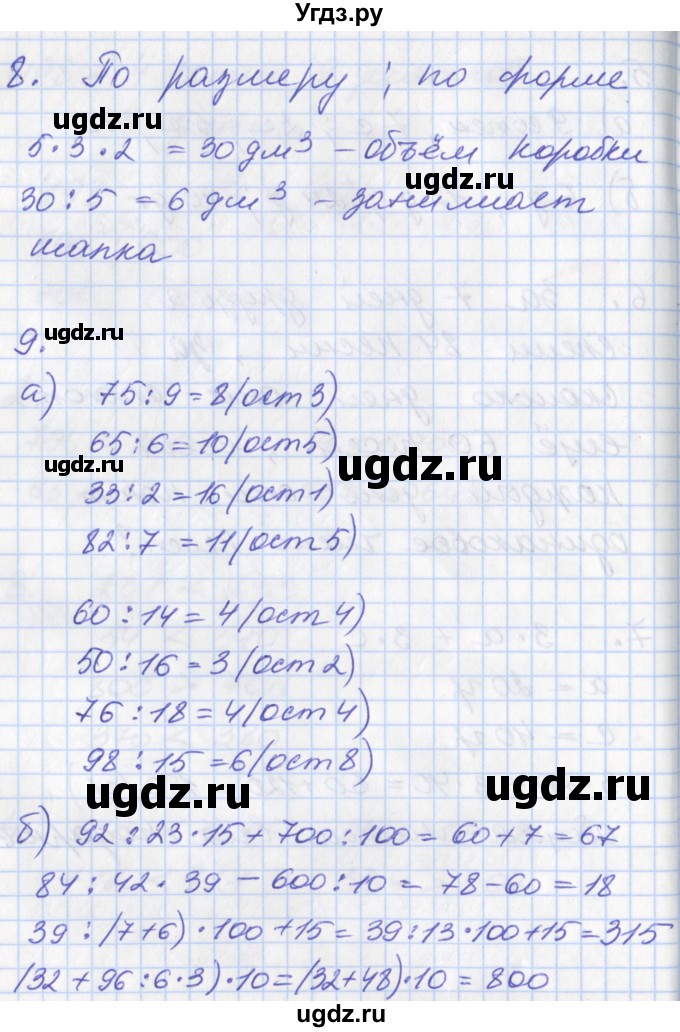 Угдз.ру
8. По размеру; по форме
ugdz.ru
5·3·2 = 30 дм³ - объём коробки
ugdz.ru
30:5 = 6 дм³ - занимает
шапка
ugdz.ru
9.
а) 75:9=8(ост3)
65:6=10(ост5)
ugdz.ru
ugdz.ru
33:2=16(ост1)
82:7=11(ост5)
60:14=4(ост4)
50:16=3(ост2)
76:18=4(ост4)
98:15=6(ост8)
ugdz.ru
ugdz.ru
б) 92:23·15+700:100=60+7=67
84:42·39-600:10=78-60=18
39:(7+6)·100+15=39:13·100+15=315
(32+96:6·3)·10=(32+48)·10=800
ugdz.ru